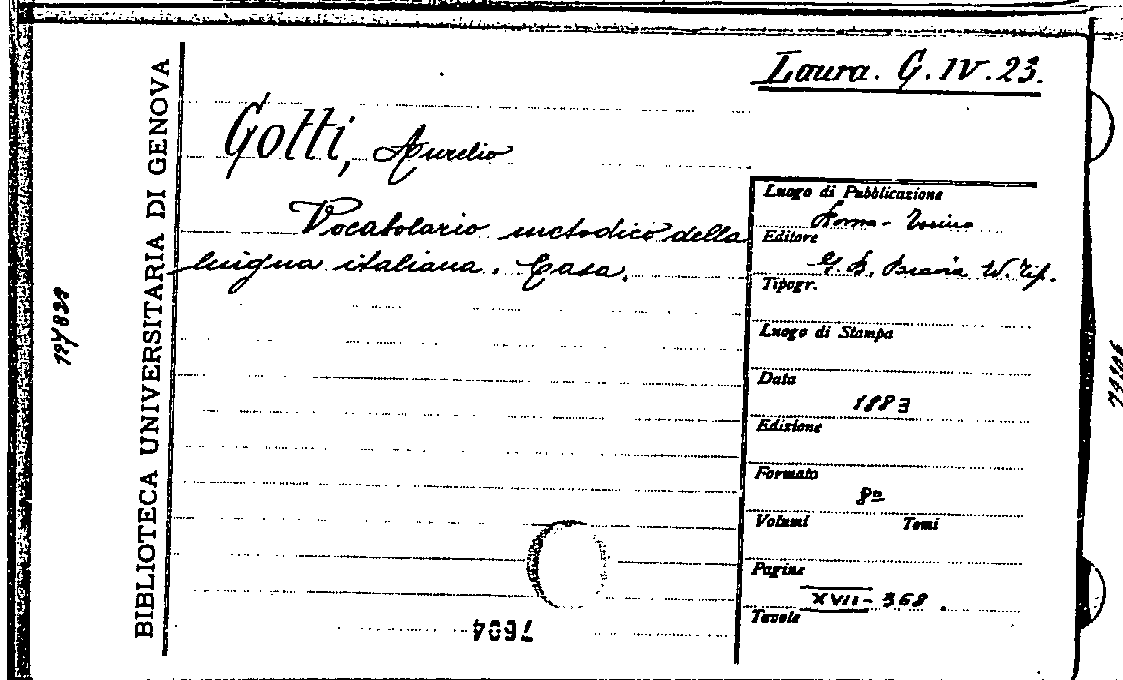 Laura. G. IV. 23.
BIBLIOTECA UNIVERSITARIA DI GENOVA
Gotti, Aurelio
Vocabolario metodico della
lingua italiana. Casa.
Luogo di Pubblicazione
Roma - Torino
Editore
G. B. Tip.
Tipogr.
Luogo di Stampa
Data
1883
Edizione
Formato
8º
Volumi Tomi
Pagine
XVII - 368.
Tavole
7604